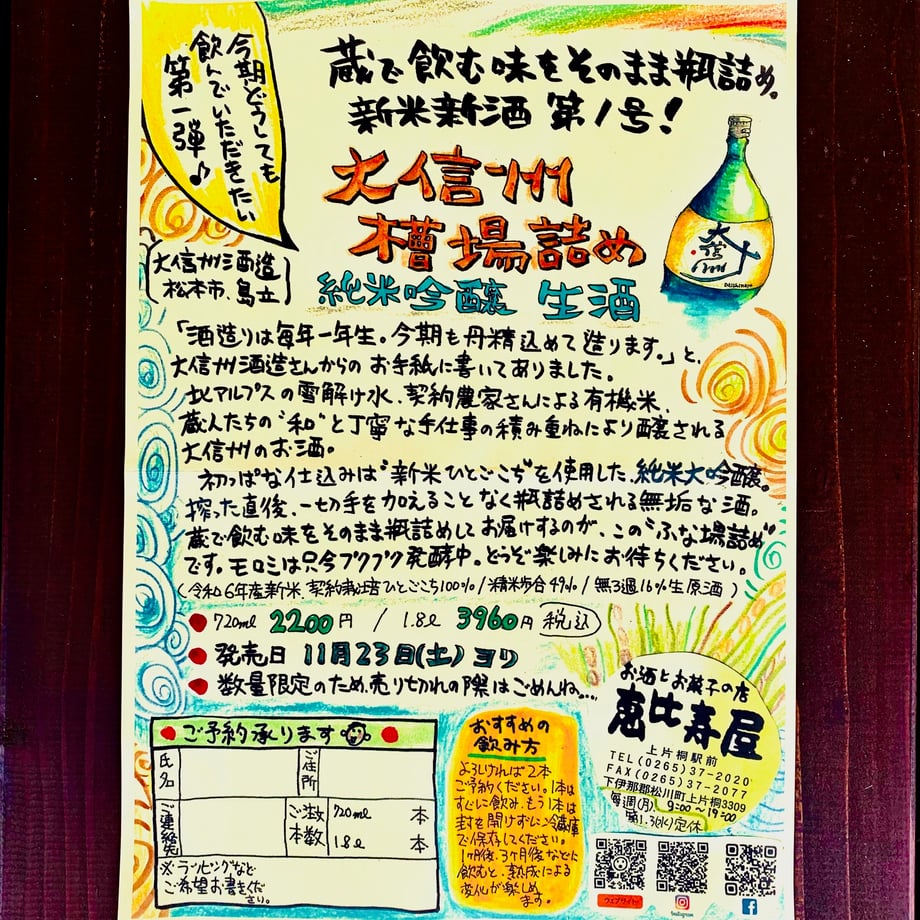 今期どうしても
飲んでいただきたい
第一弾♪
蔵で飲む味をそのまま瓶詰め。
新米新酒 第1号!
大信州
槽場詰め
純米吟醸 生酒
大信州
Daishinsyu
大信州酒造
松本市、島立
「酒造りは毎年一年生。今期も丹精込めて造ります。」と、
大信州酒造さんからのお手紙に書いてありました。
北アルプスの雪解け水、契約農家さんによる有機米、
蔵人たちの“和”と丁寧な手仕事の積み重ねにより醸される
大信州のお酒。
初っぱな仕込みは“新米ひとごこち”を使用した、純米大吟醸。
搾った直後、一切手を加えることなく瓶詰めされる無垢な酒。
蔵で飲む味をそのまま瓶詰めしてお届けするのが、この“ふな場詰め”
です。モロミは只今プクプク発酵中。どうぞ楽しみにお待ちください。
(令和6年産新米、契約栽培ひとごこち100%/精米歩合49%/無ろ過16%生原酒)
720ml 2200円 / 1.8l 3960円 税込
発売日 11月23日(土)ヨリ
数量限定のため、売り切れの際はごめんね...
ご予約承ります
氏名
ご住所
ご連絡先
ご注文本数
720ml 本
1.8l 本
※ラッピングなど
ご希望お書きくだ
さい。
おすすめの
飲み方
よろしければ2本
ご予約ください。1本は
すぐに飲み、もう1本は
封を開けずに冷蔵庫
で保存してください。
1ヶ月後、3ヶ月後などに
飲むと、熟成による
変化が楽しめ
ます。
お酒とお菓子の店
恵比寿屋
上片桐駅前
TEL(0265)37-2020
FAX(0265)37-2077
下伊那郡松川町上片桐3309
毎週(月) 9:00〜19:00
第1.3(火)定休
ウェブサイト
Instagram